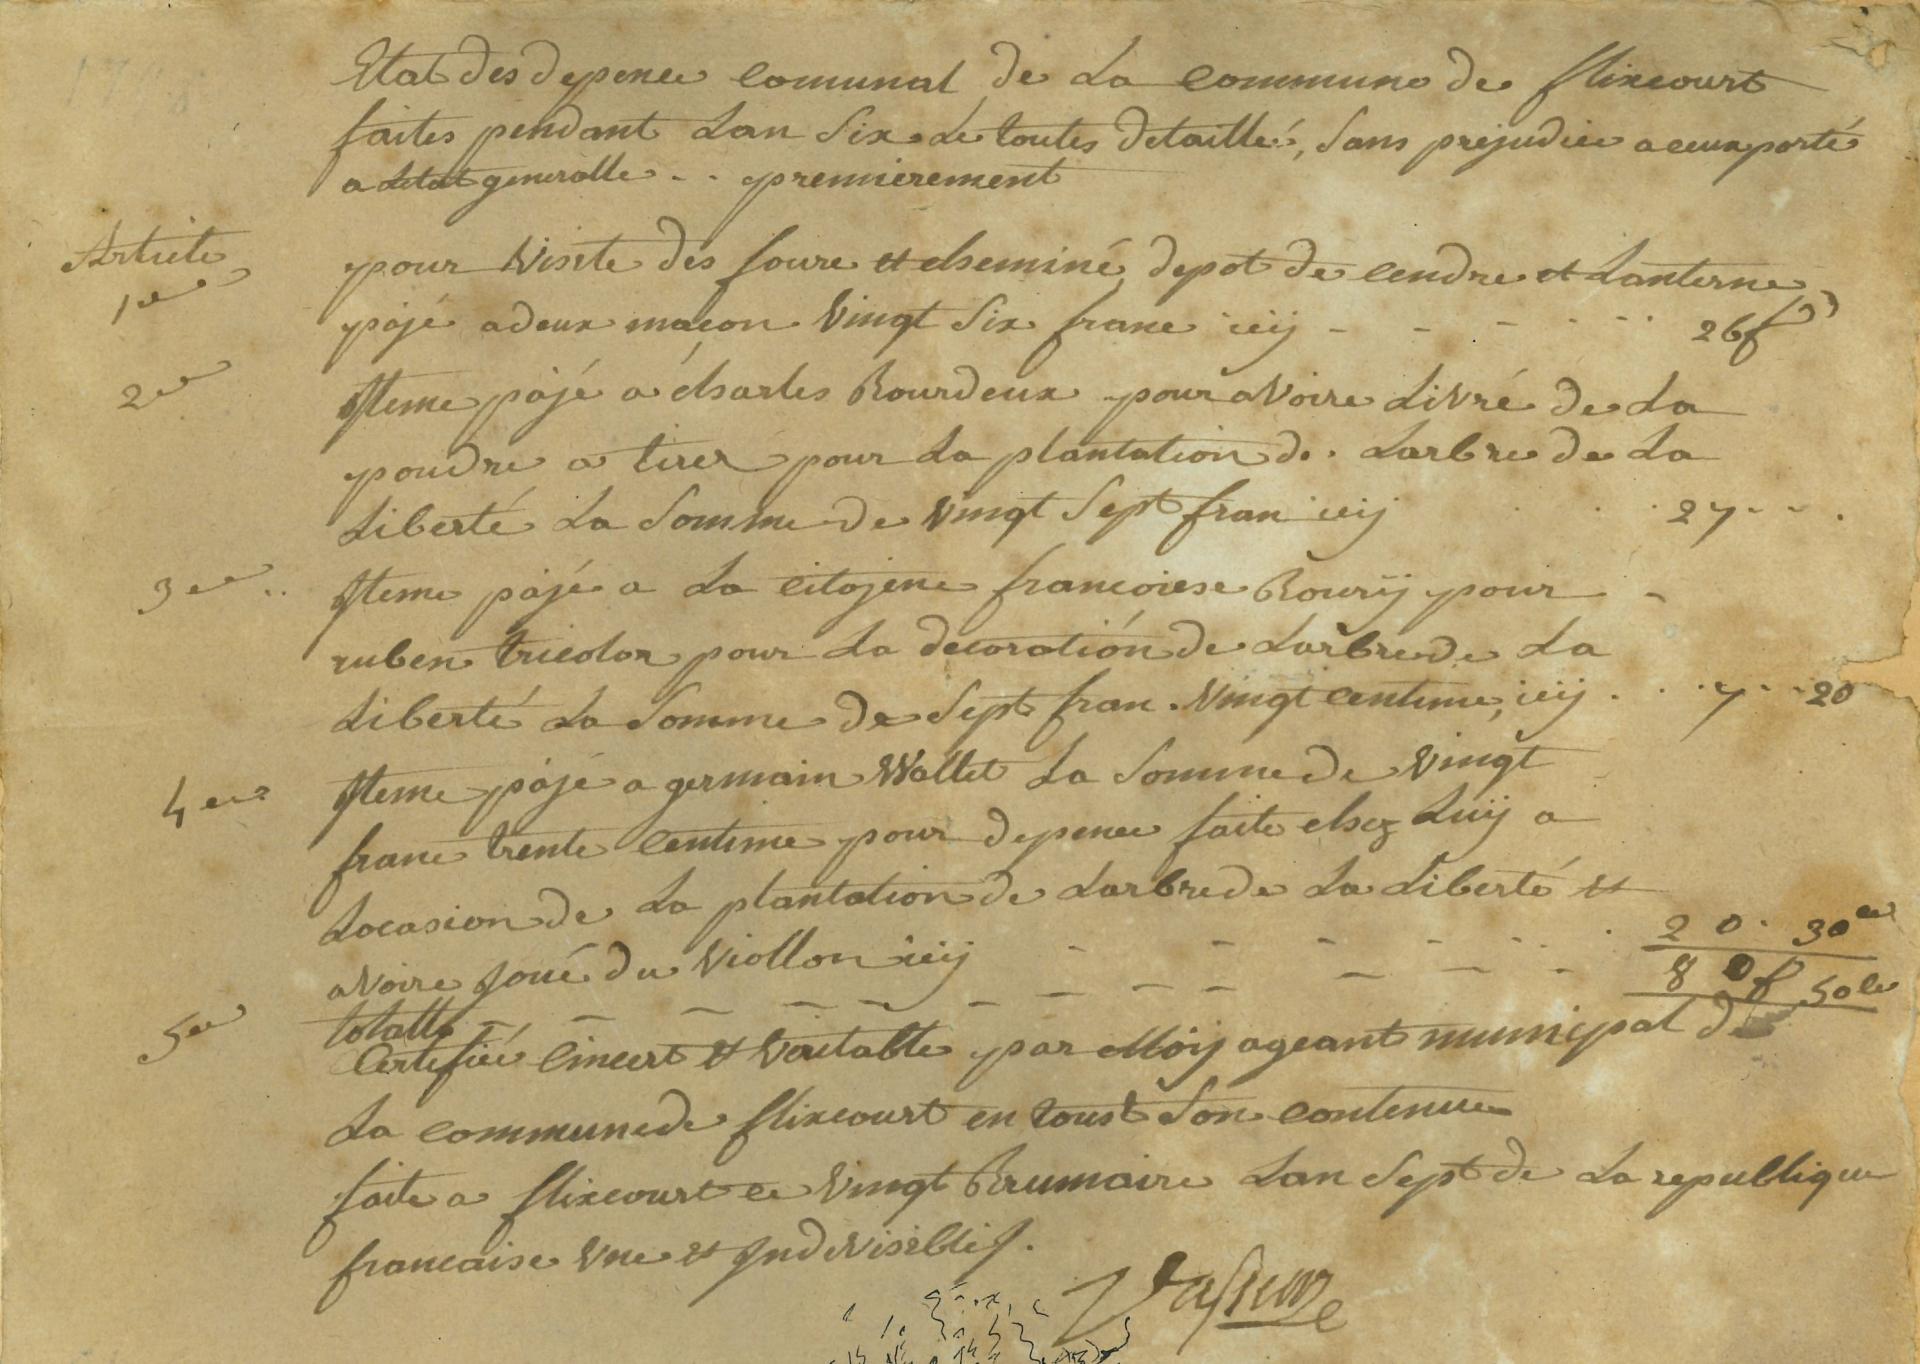 Etat des depence comunal de La commune de flixcourt
faites pendant Lan Six Le toutes detaillé, Sans prejudice a ceux porté
a Letat generalle - - premierement
Article 1er pour visite des foure et cheminé, depot de cendre et Lanterne
pajé a deux macon vingt Six franc icij - - - - - - 26f
2em Iteme pajé a charles Bourdeux pour avoire Livré de La
poudre a tirer pour La plantation de Larbre de La
Liberté La Somme de vingt Sept fran icij 27 - - .
3em .. Iteme pajé a La citojene francoiese Bourij pour -
ruben tricolor pour La decoration de Larbre de La
Liberté La Somme de Sept fran. vingt centime, icij . . . 7 . . 20
4em Iteme pajé a germain Wallet La Somme de vingt
franc trente centime pour depence faite chez Luij a
Locasion de La plantation de Larbre de La Liberté et
avoire joué du viollon icij - - - - - . 20 . 30ce
5em totalle - - - - - - - - - - - 80f 50ce
Certefiié Cincert et veritable par Moij ageant municipal d
La commune de flixcourt en toust Son contenue
faite a flixcourt ce vingt Brumaire Lan Sept de La republique
francaise vne et Indivisible